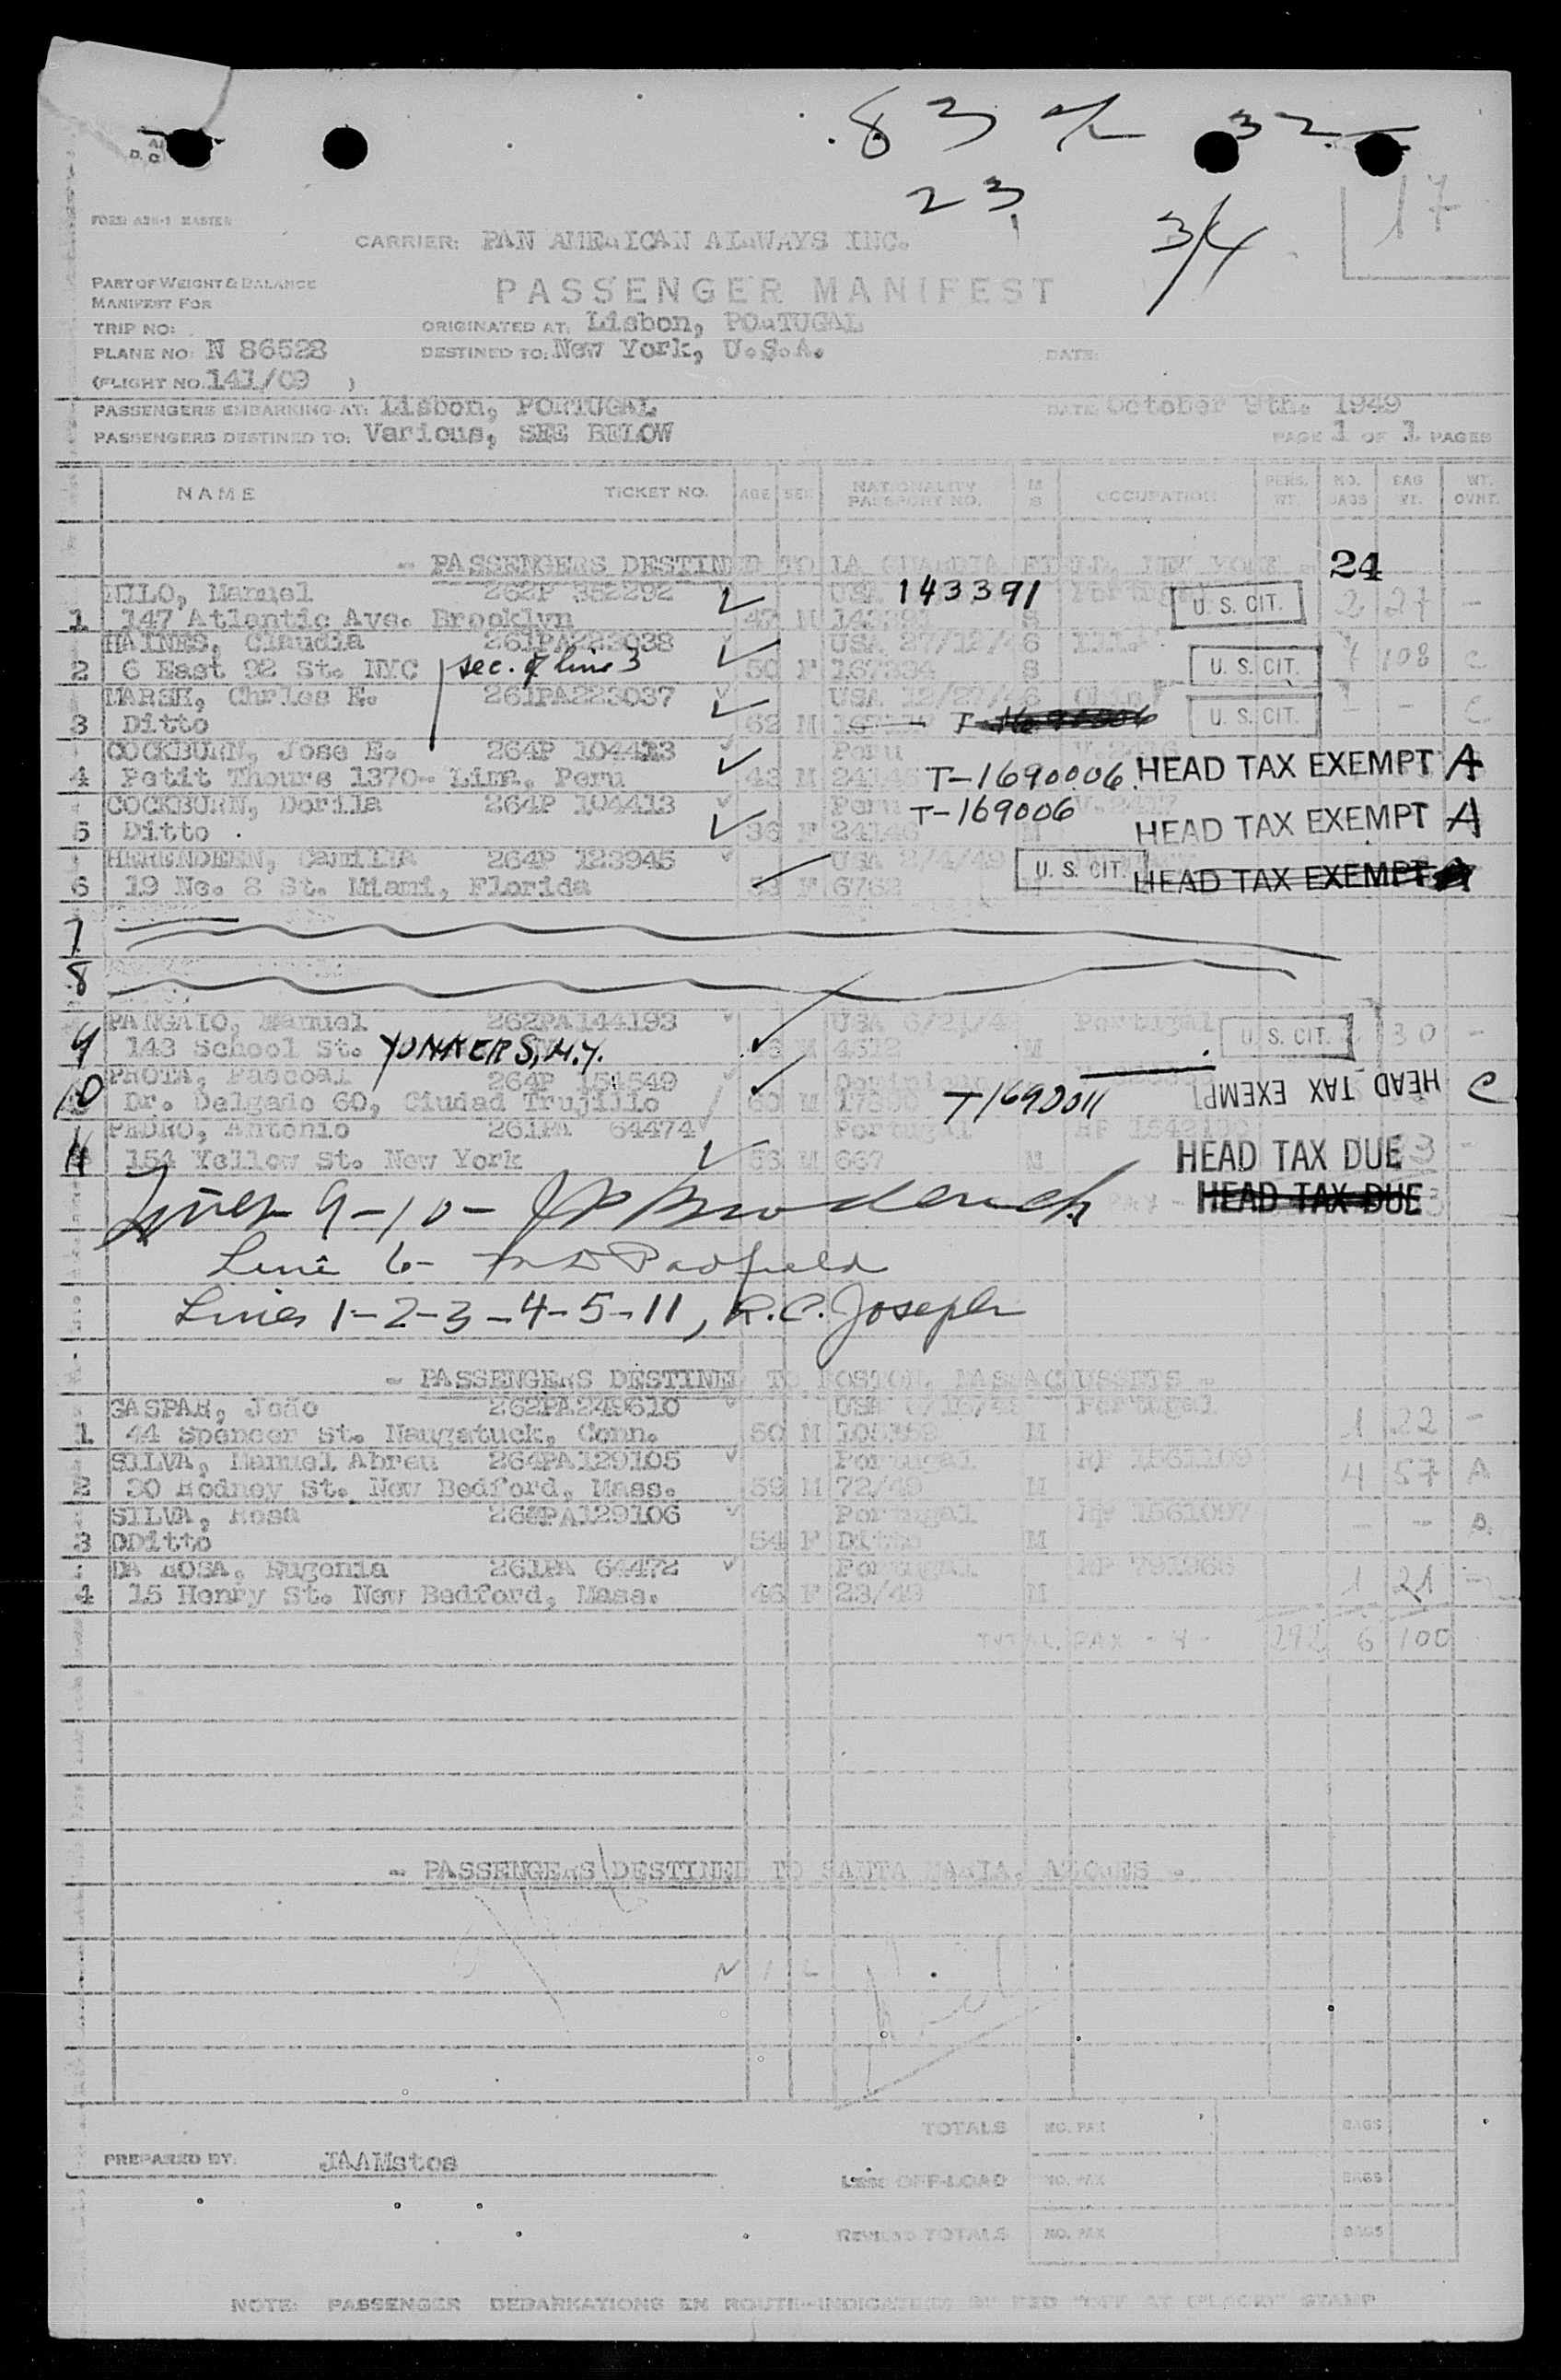 83 32
23 3/4 17
FORM ADM-1 MASTER
CARRIER: PAN AMERICAN AIRWAYS INC.
PART OF WEIGHT & BALANCE
MANIFEST FOR
PASSENGER MANIFEST
TRIP NO: ORIGINATED AT: Lisbon, PORTUGAL
PLANE NO: N 86528 DESTINED TO: New York, U.S.A. DATE:
(FLIGHT NO. 141/09 )
PASSENGERS EMBARKING AT: Lisbon, PORTUGAL DATE October 9th. 1949
PASSENGERS DESTINED TO: Various, SEE BELOW PAGE 1 OF 1 PAGES
NAME TICKET NO. AGE SEX NATIONALITY PASSPORT NO. M S OCCUPATION PERS. WT. NO. BAGS BAG WT. WT. OVHT.
- PASSENGERS DESTINED TO LA GUARDIA FIELD, NEW YORK - 24
NILO, Manuel 262P 352292 USA 143391 Portugal
1 147 Atlantic Ave. Brooklyn 47 M S U. S. CIT. 2 27 -
HAINES, Claudia 261PA223038 USA 27/12/46 Ill.
2 6 East 92 St. NYC sec. of line 3 50 F 167394 S U. S. CIT. 7 108 C
MARSH, Chrles E. 261PA223037 USA 12/27/46 Ohio
3 Ditto 62 M T- U. S. CIT. - - C
COCKBURN, Jose E. 264P 104413 Peru
4 Petit Thours 1370- Lima, Peru 43 M T-1690006. HEAD TAX EXEMPT A
COCKBURN, Dorila 264P 104413 Peru T-169006 V.2417
5 Ditto 36 F 24146 M HEAD TAX EXEMPT A
HERENDEEN, Camilla 264P 123945 USA
6 19 Ne. 8 St. Miami, Florida F 6762 U. S. CIT. HEAD TAX EXEMPT
7
8
PANGAIO, Manuel 262PA144193 USA Portugal
9 143 School St. YONKERS, N.Y. M 4312 M U. S. CIT. 30 -
PROTA, Pascoal 264P 154549 Dominican
10 Dr. Delgado 60, Ciudad Trujillo 60 M T1690011 HEAD TAX EXEMPT C
PEDRO, Antonio 261PA 64474 Portugal
11 154 Yellow St. New York 53 M 667 M HEAD TAX DUE
HEAD TAX DUE
Lines 9-10- JP Broderick
Line 6- Padfield
Lines 1-2-3-4-5-11, R.C. Joseph
- PASSENGERS DESTINED TO BOSTON, MASSACUSSETS -
GASPAR, João 262PA249610 USA Portugal
1 44 Spencer St. Naugatuck, Conn. 50 M M 1 22 -
SILVA, Manuel Abreu 264PA129105 Portugal RP 1561109
2 30 Rodney St. New Bedford, Mass. 59 M 72/49 M 4 57 A
SILVA, Rosa 264PA129106 Portugal RP 1561097
3 DDitto 54 F Ditto M - - A
DA ROSA, Eugenia 261PA 64472 Portugal
4 15 Henry St. New Bedford, Mass. 46 F 23/49 M 1 21 -
TOTAL PAX - 4 - 292 6 100
- PASSENGERS DESTINED TO SANTA MARIA, AZORES -
N I L
TOTALS NO. PAX BAGS
PREPARED BY: JAAMatos
LESS OFF-LOAD NO. PAX BAGS
REVISED TOTALS NO. PAX BAGS
NOTE: PASSENGER DEBARKATIONS EN ROUTE-INDICATED BY RED "OFF AT (PLACE)" STAMP